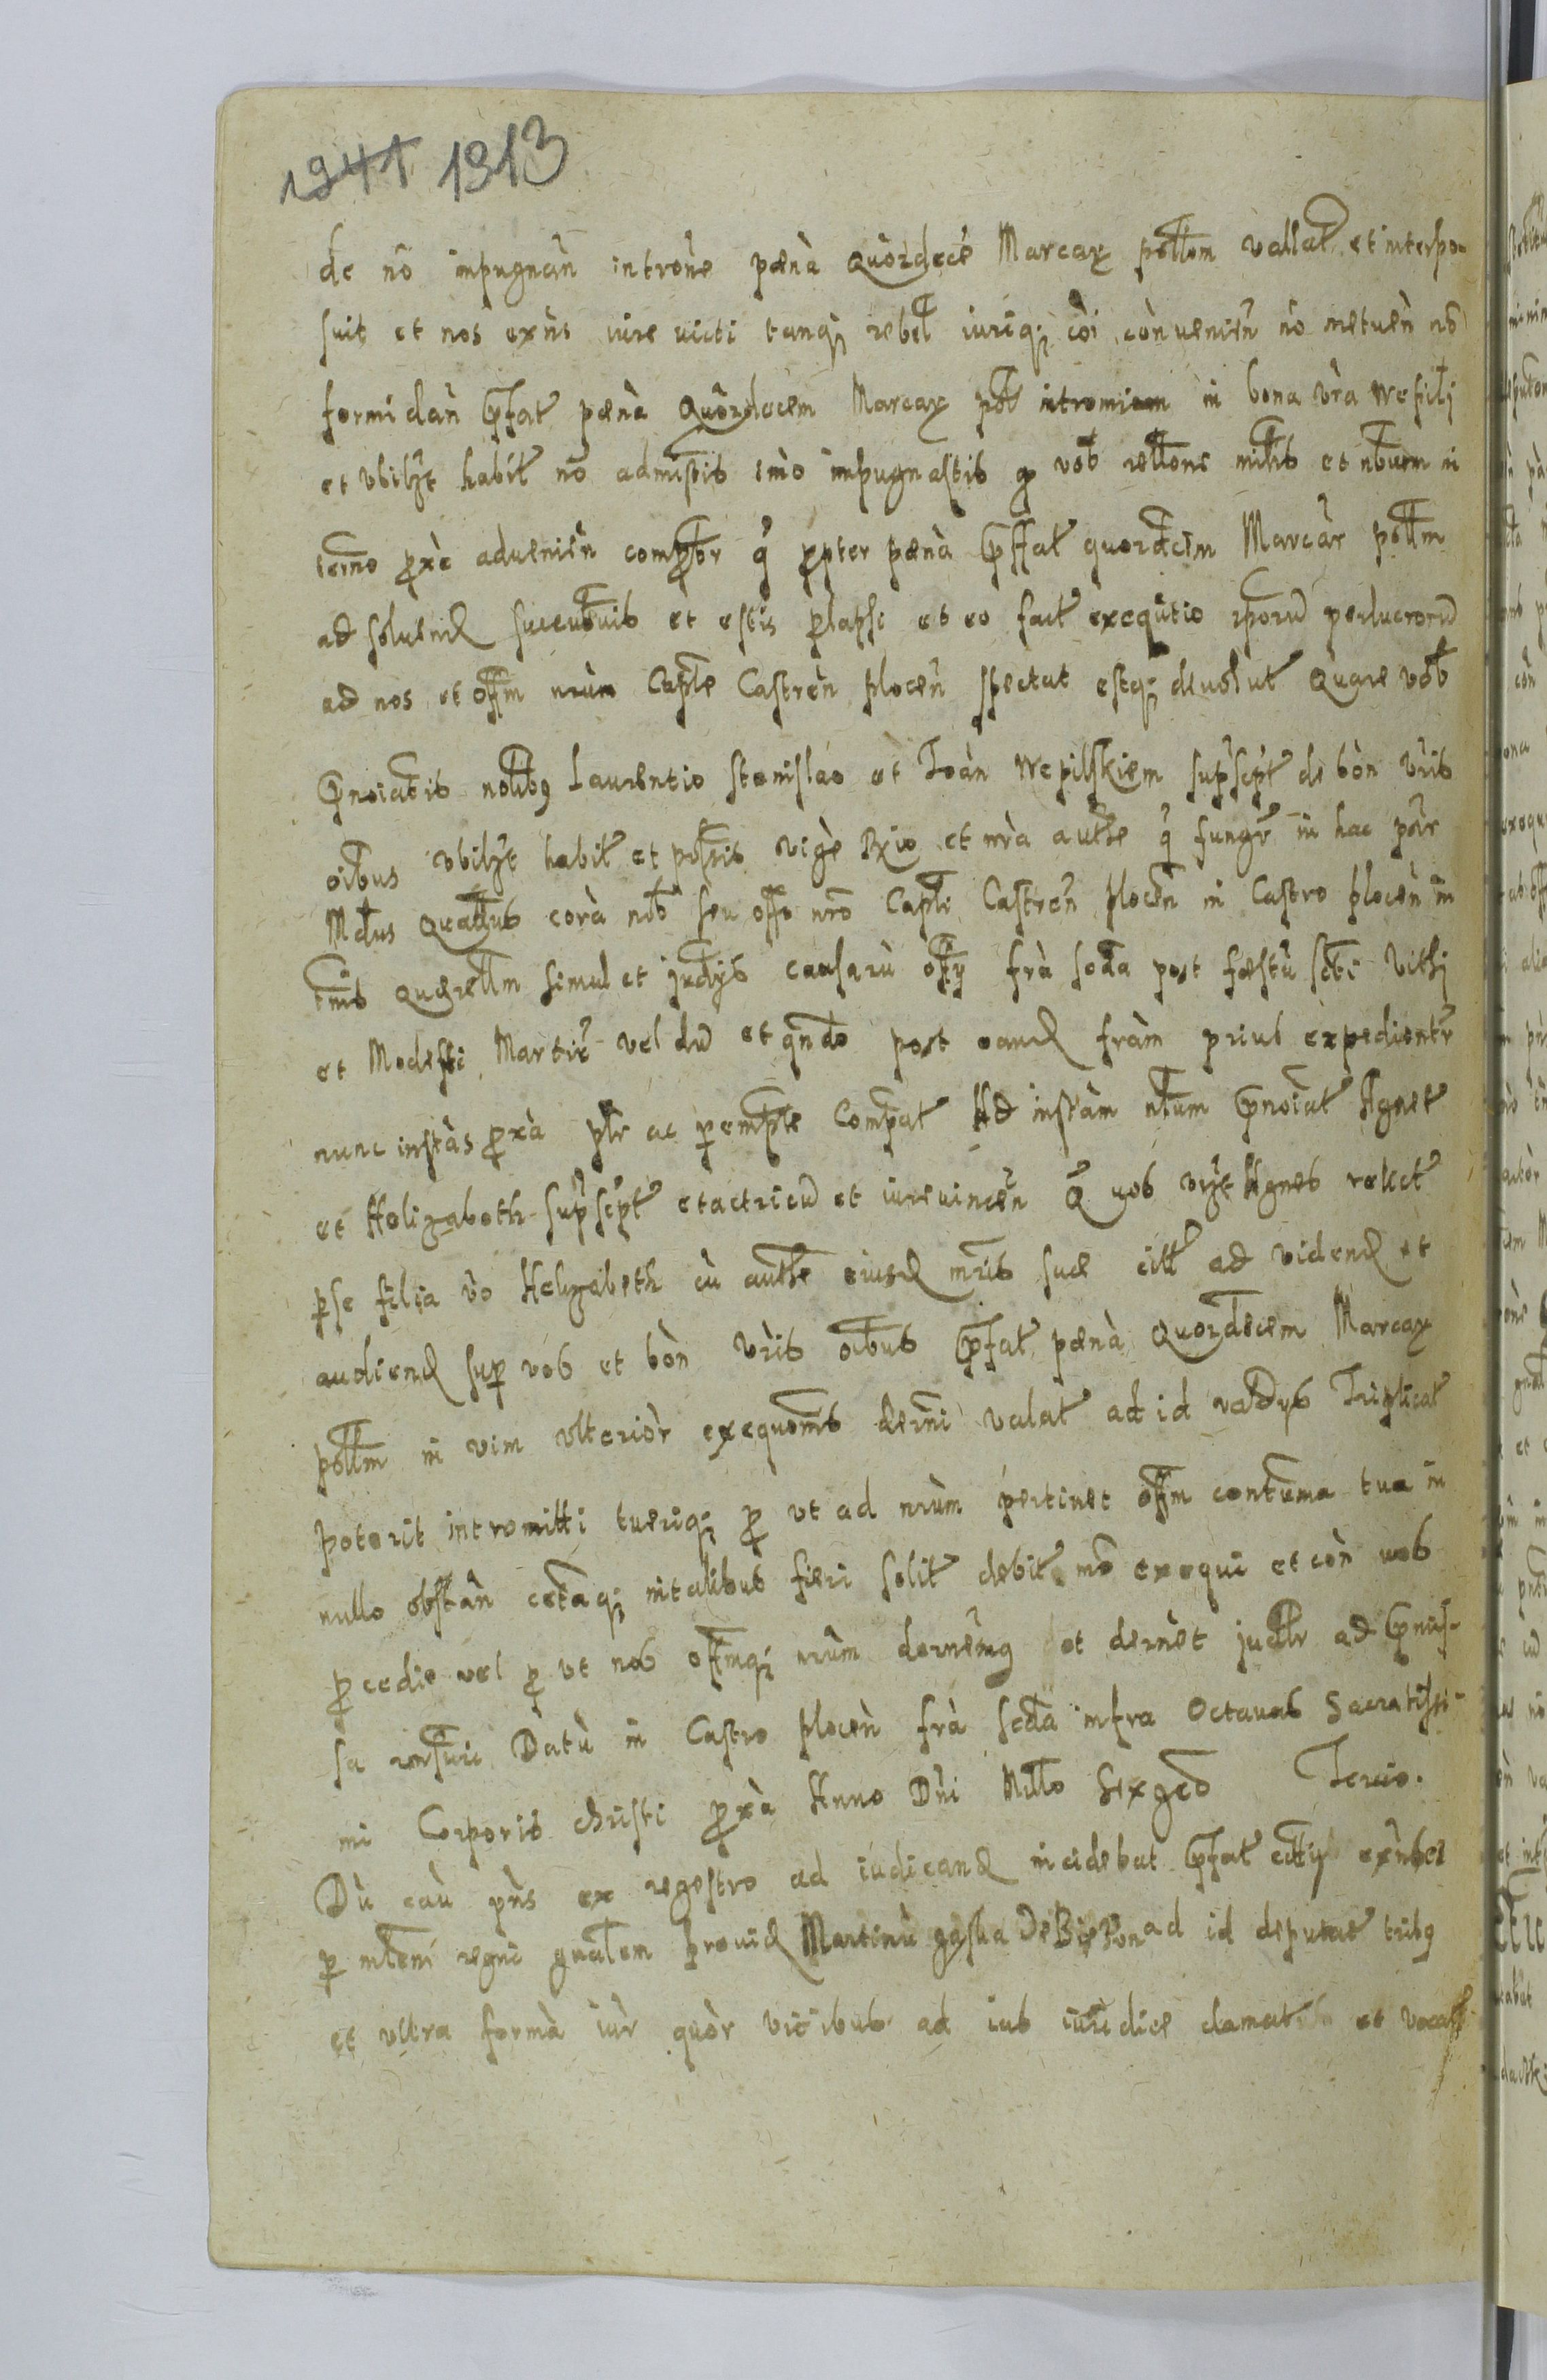 1941 1913
de nô impugnàn intrône pænà Quôrdecê Marcar pollem vallat et interpo-
suit et nos exñs iure victi tanq; rebel iuriq; côi convenien nô metuèn nô
formidàn pfat pænà Quôrdecem Marcar pol intromi in bona vra Wepilj
et vbilȝt habit nô admistis imò impugnastis vob rellone mihs et in
termo proxe advenien q propter pænà pffat quordcim Marcar pollm
ad soluend succubuis et estis plapsi et eo fact exequtio perlucrorum
ad nos et offm nrum Caple Castren plocen spectat estq; devolut Quare vob
pnoiatis nolibq Laurentio Stanislao et Joàn Wepilskiem supscpt de bòn vris
oibus vbilȝt habit et posris vigè Rgio et nrà authe q fungr in hac par
Mdus Quatus corà nob seu offo nro Capli Castren plocen in Castro plocen in
tmis querellm simul et judijs causarù offij frà scda post fæstù scti Vithj
et Modesti Martir vel dum et qndo post eand fràm prius expedientr
nunc instàs proxà pltr ac pemptle Compat Ad instàm pnoiat Agnet
et Helizabeth supscpt et actricum et iurevincen Q vos vȝt Agnes relict
p se filia vo Helizabeth cù authe eiusd mris suæ citt ad vidend et
audiend sup vos et bòn vris oibus pfat pænà Quordecem Marcar
pollm in vim vlterior exequonis derni valat ad id vadys Triplicat
poterit intromitti tueriq; pro vt ad nrùm pertinet offm contuma tua in
nullo obstàn cetaq; in talibus fieri solit debit mo exequi et còn vos
procedie vel pro vt nos offmq; nrùm dernemg et dernet judlr ad pmis-
sa rnsuri Datù in Castro plocen frà scda infra Octavas Sacratissi-
mi Corporis Christi proxà Anno Dni Millo Sexgeo Tercio.
Dù càu pns ex regestro ad iudicand incidebat pfat citty exnbes
p mlem regni gnalem provid Martinù gaska De Bielin ad id deputat tribq
et vltra formà iur quòr vicibus ad ius iuridice clamat et vocatt